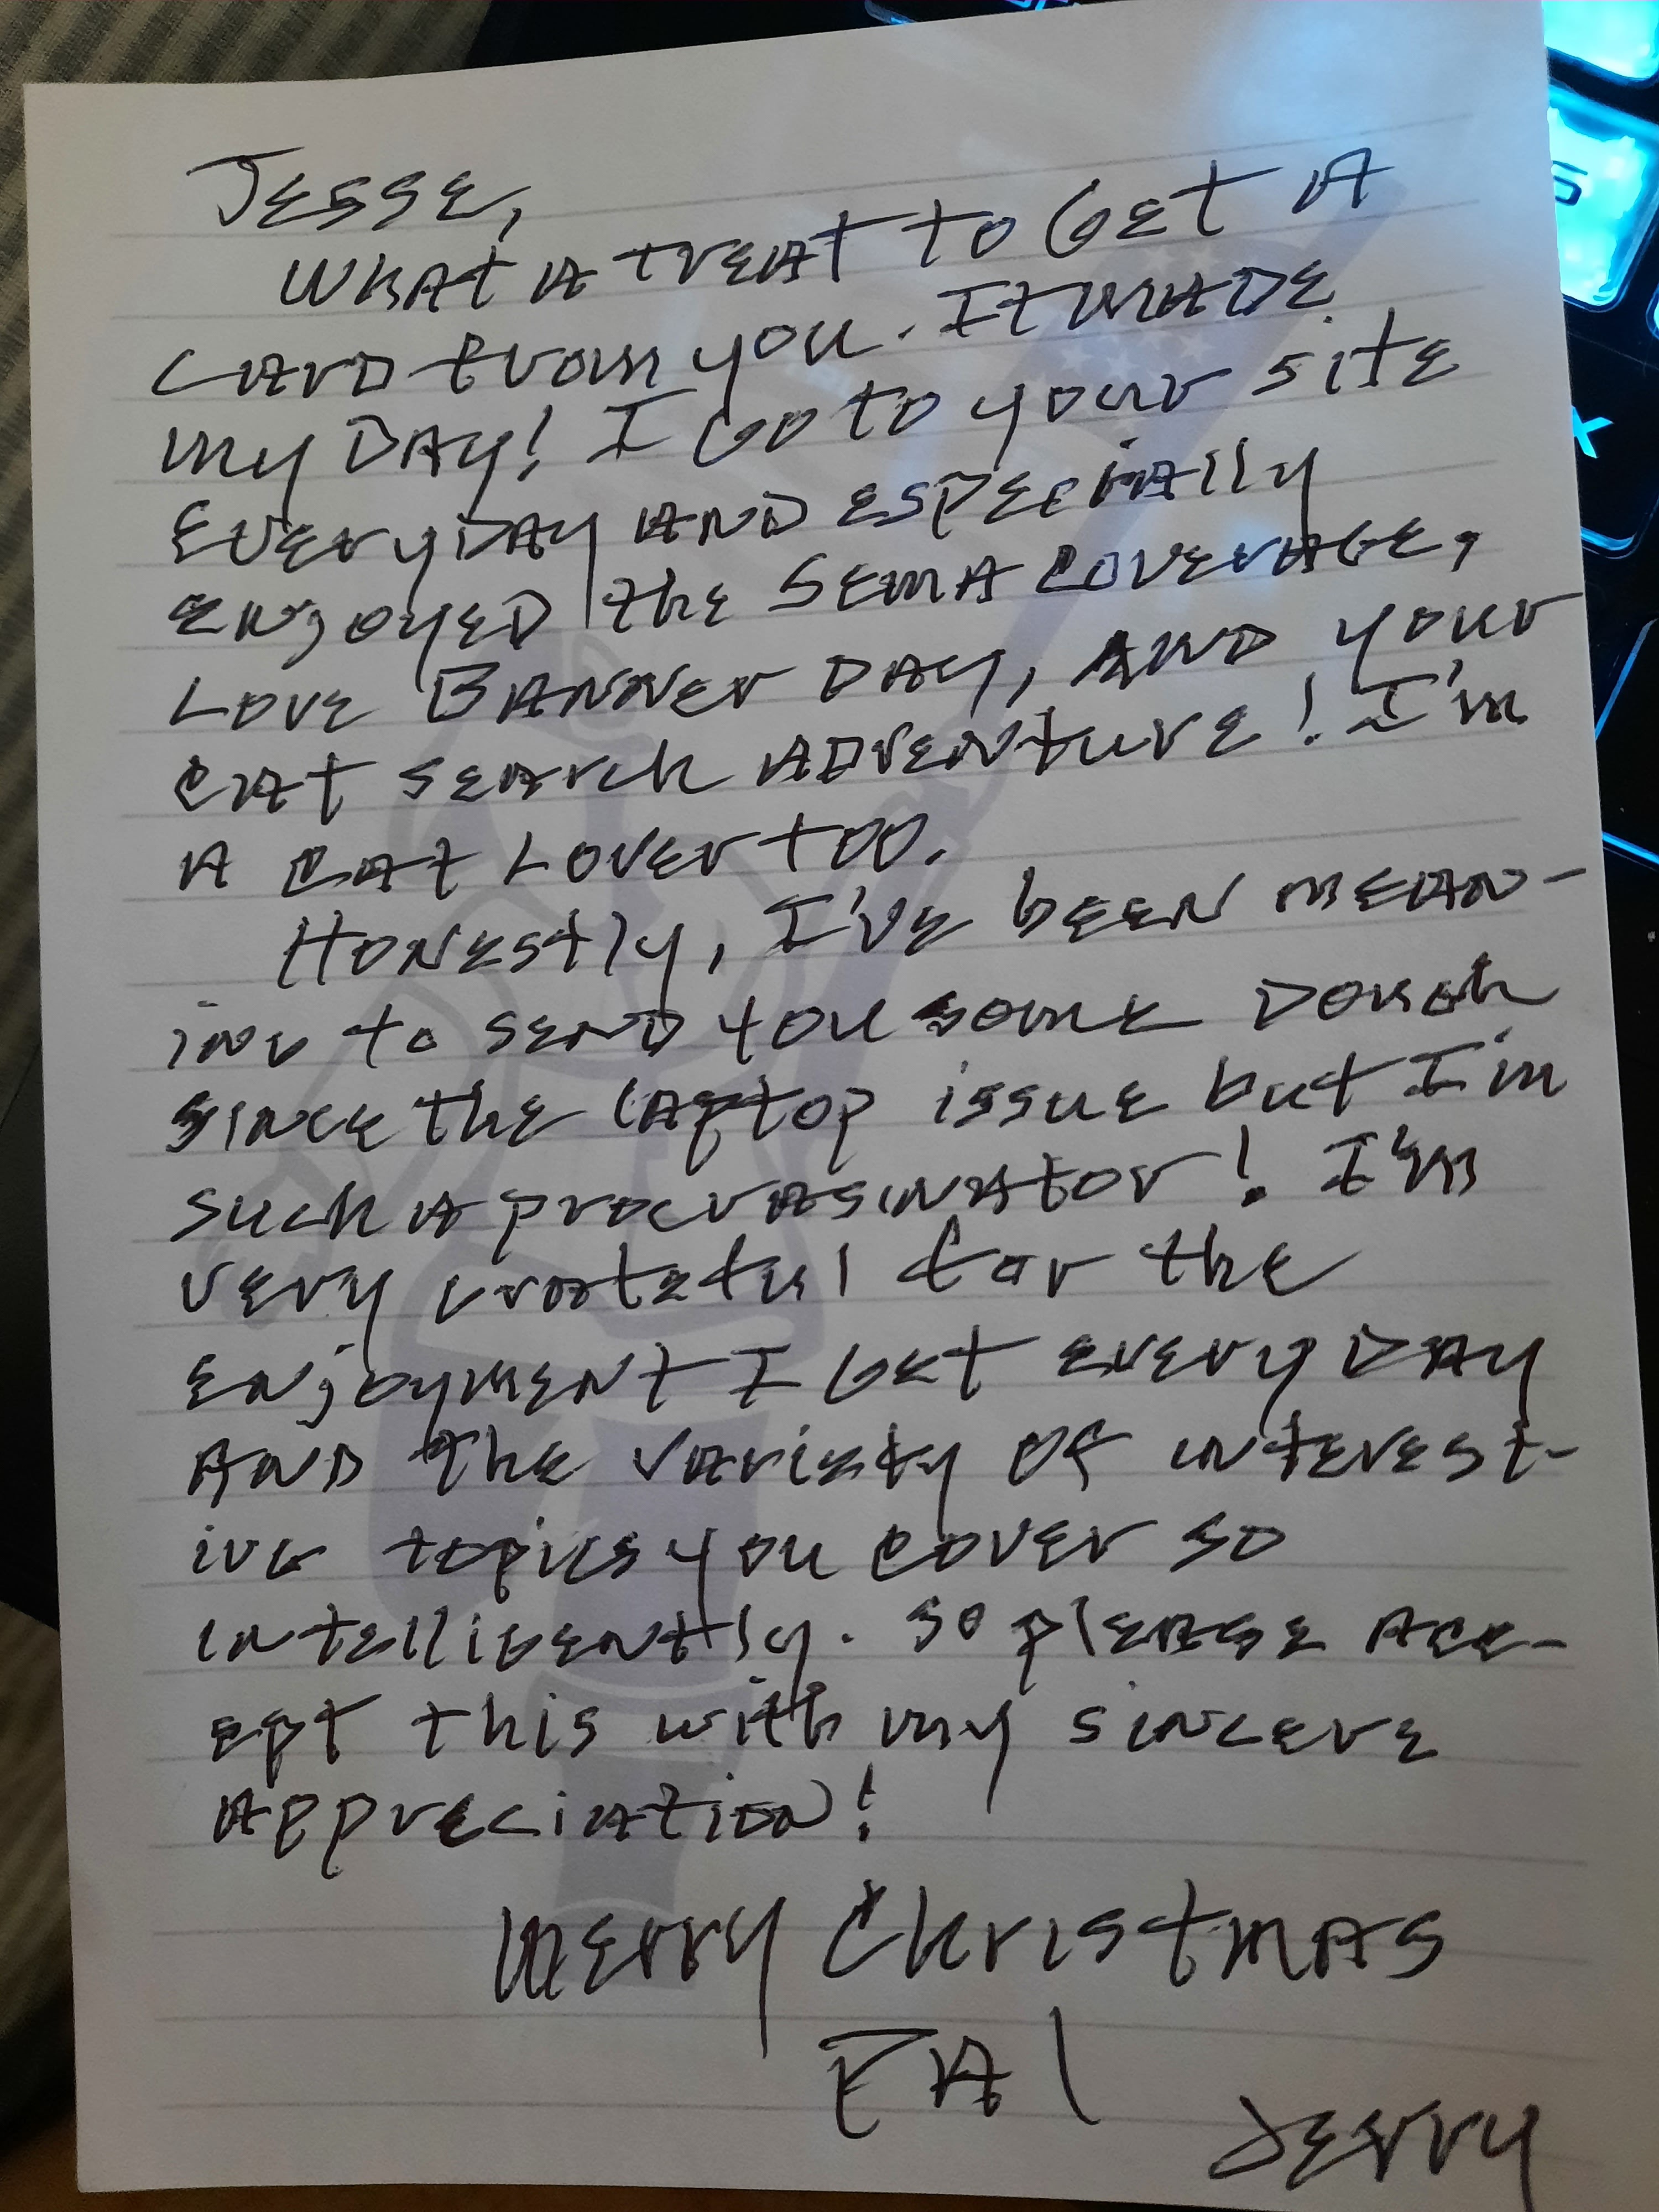 Jesse,
What a treat to get a
card from you. It made
my day! I go to your site
everyday and especially
enjoyed the SEMA coverage,
Love Banner Day, and your
cat search adventure! I'm
a cat lover too.
Honestly, I've been mean-
ing to send you some dough
since the laptop issue but I'm
such a procrasinator! I'm
very grateful for the
enjoyment I get everyday
and the variety of interest-
ing topics you cover so
intelligently. So please acc-
ept this with my sincere
appreciation!
Merry Christmas
Pal
Jerry